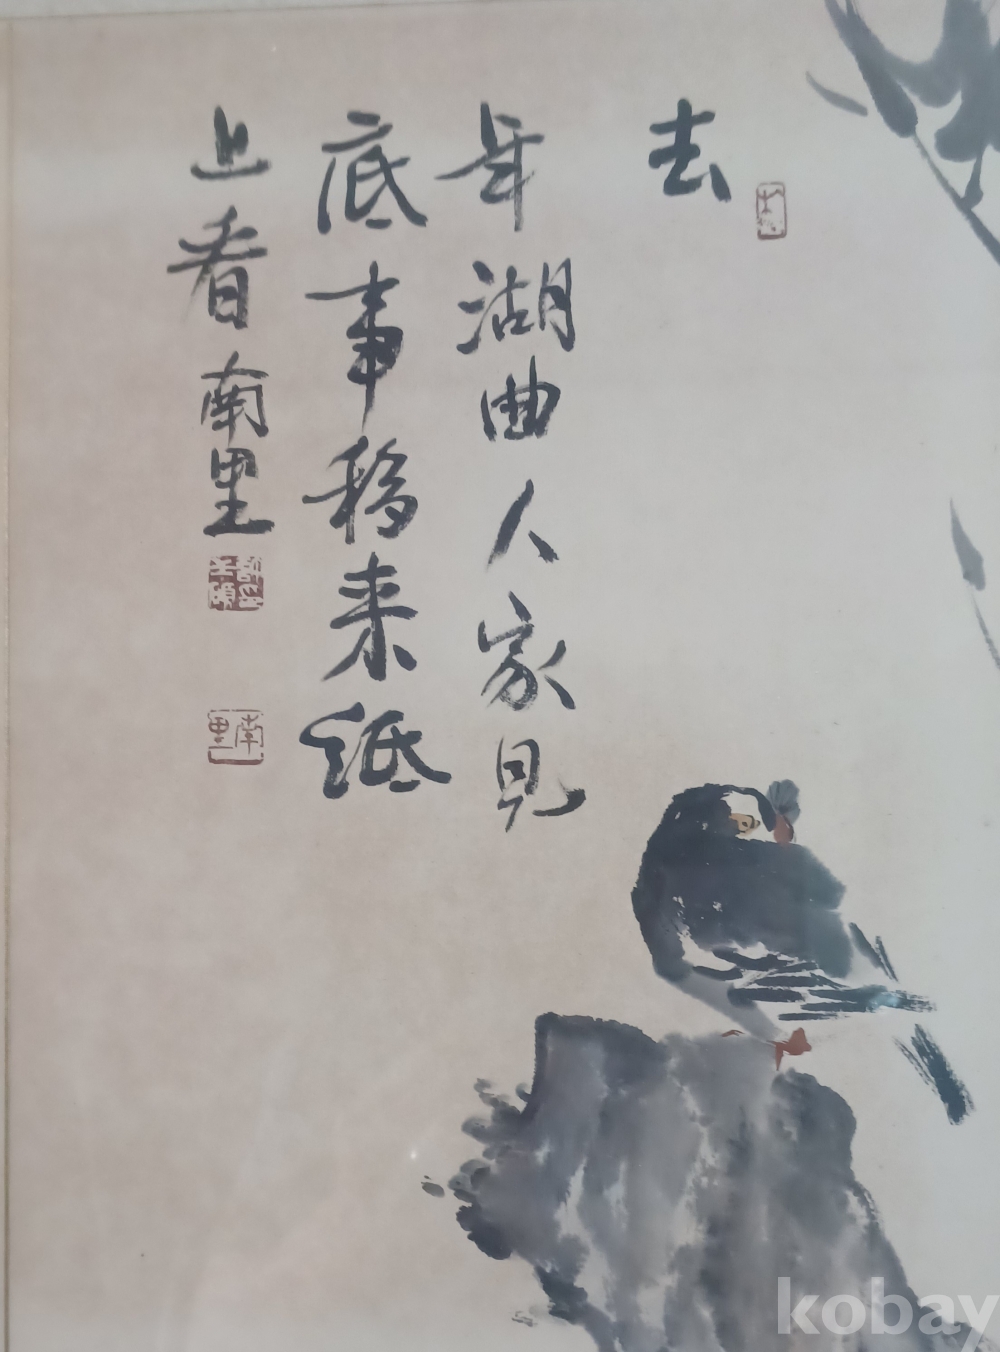 去
年湖曲人家見
底事移来紙
上看南里
南里
kobay